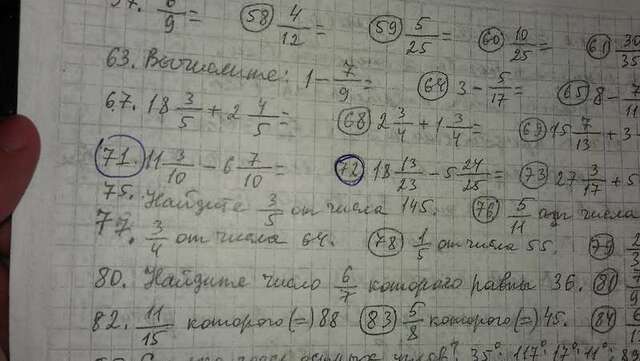 57. 6/9 = 58 4/12 = 59 5/25 = 60 10/25 = 61 30/35
63. Вычислите: 1 - 7/9 = 64 3 - 5/17 = 65 8 - 7/11
67. 18 3/5 + 2 4/5 = 68 2 3/4 + 1 3/4 = 69 15 7/13 + 3
71. 11 3/10 - 6 7/10 = 72 18 13/23 - 5 24/25 = 73 27 3/17 + 5
75. Найдите 3/5 от числа 145. 76 5/11 числа
77. 3/4 от числа 64. 78 1/5 от числа 55. 79 2/3
80. Найдите число 6/7 которого равны 36. 81 7/9
82. 11/15 которого (=) 88 83 5/8 которого (=) 45. 84 6
углов? 35° 117° 17° 11°